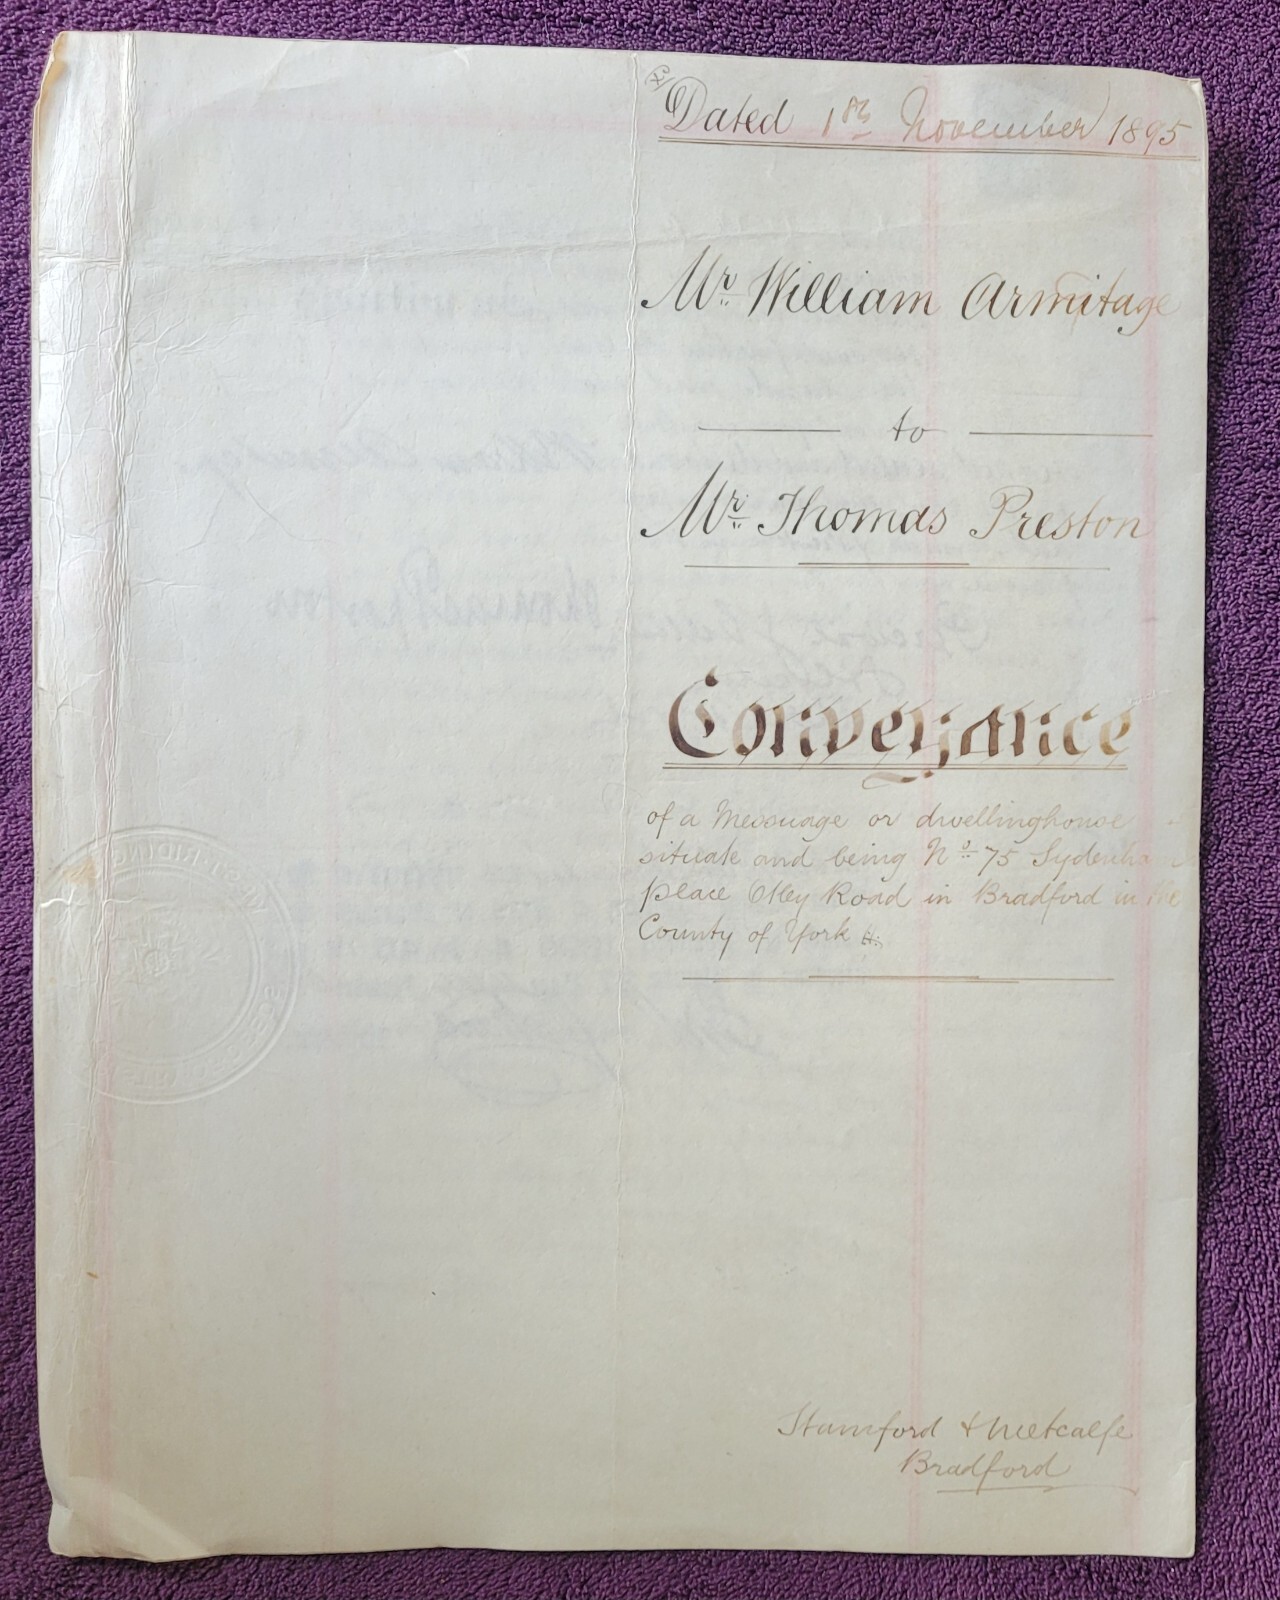 Dated 1st November 1895
Mr. William Armitage
to
Mr. Thomas Preston
Conveyance
of a Messuage or dwellinghouse
situate and being No. 75 Sydenham
place Otley Road in Bradford in the
County of York
Stamford & Metcalfe
Bradford
WEST RIDING